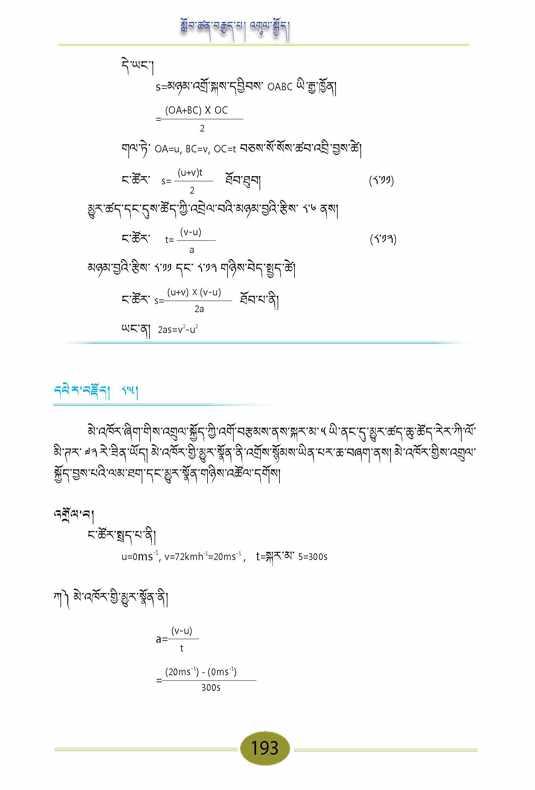 སློབ་ཚན་བརྒྱད་པ། འགུལ་སྐྱོད།
དེ་ཡང་།
s=མཉམ་འགྲོ་སྐས་དབྱིབས་ OABC ཡི་རྒྱ་ཁྱོན།
= (OA+BC) X OC / 2
གལ་ཏེ་ OA=u, BC=v, OC=t བཅས་སོ་སོས་ཚབ་འབྲི་བྱས་ཚེ།
ང་ཚོར་ s= (u+v)t / 2 ཐོབ་ཐུབ། (༨་༡༡)
མྱུར་ཚད་དང་དུས་ཚོད་ཀྱི་འབྲེལ་བའི་མཉམ་བྱའི་རྩིས་ ༨་༦ ནས།
ང་ཚོར་ t= (v-u) / a (༨་༡༢)
མཉམ་བྱའི་རྩིས་ ༨་༡༡ དང་ ༨་༡༢ གཉིས་བེད་སྤྱད་ཚེ།
ང་ཚོར་ s= (u+v) X (v-u) / 2a ཐོབ་པ་ནི།
ཡང་ན། 2as=v²-u²
དཔེར་བརྗོད། ༨༥།
མེ་འཁོར་ཞིག་གིས་འགུལ་སྐྱོད་ཀྱི་འགོ་བརྩམས་ནས་སྐར་མ་ ༥ ཡི་ནང་དུ་མྱུར་ཚད་ཆུ་ཚོད་རེར་ཀི་ལོ་
མི་ཊར་ ༧༢ རེ་ཟིན་ཡོད། མེ་འཁོར་གྱི་མྱུར་སྣོན་ནི་འགྲོས་སྙོམས་ཡིན་པར་ཆ་བཞག་ནས། མེ་འཁོར་གྱིས་འགུལ་
སྐྱོད་བྱས་པའི་ལམ་ཐག་དང་མྱུར་སྣོན་གཉིས་འཚོལ་དགོས།
འགྲོལ་བ།
ང་ཚོར་སྤྲད་པ་ནི།
u=0ms⁻¹, v=72kmh⁻¹=20ms⁻¹ , t=སྐར་མ་ 5=300s
ཀ༽ མེ་འཁོར་གྱི་མྱུར་སྣོན་ནི།
a= (v-u) / t
= (20ms⁻¹) - (0ms⁻¹) / 300s
193